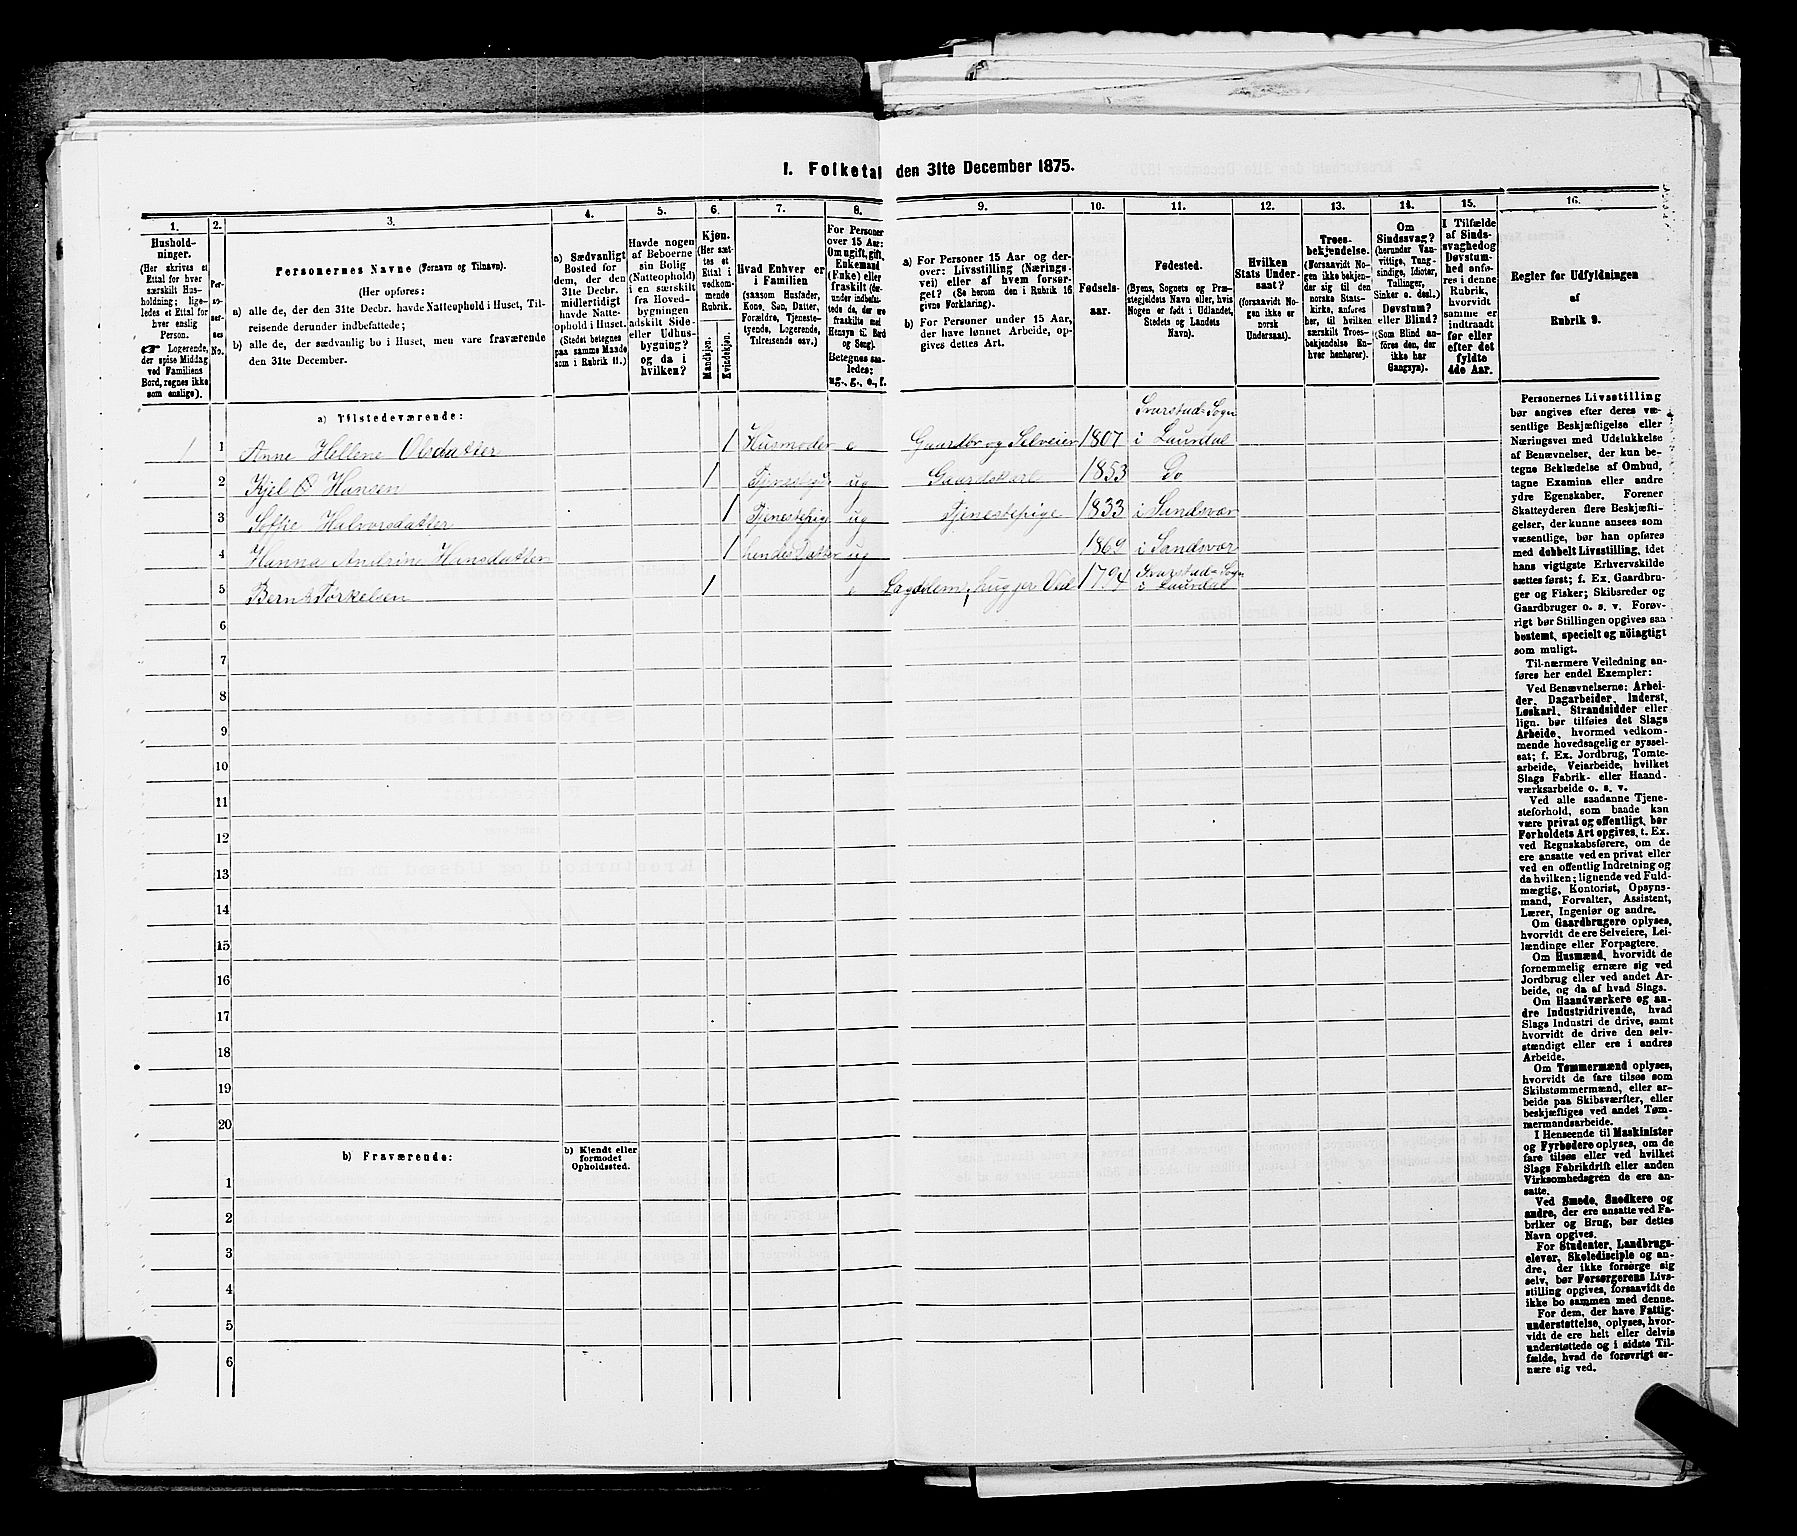 1. Folketal den 31te December 1875.
1. 2. 3. 4. 5. 6. 7. 8. 9. 10. 11. 12. 13. 14. 15. 16.
Hushold-
ninger.
(Her skrives et
Ettal for hver
særskilt Hus-
holdning; lige-
ledes et Ettal for
hver enslig
Person.
☞ Logerende,
der spise Middag
ved Familiens
Bord, regnes ikke
som enslige).
Per-
so-
ner-
nes
No.
Personernes Navne (Fornavn og Tilnavn).
(Her opføres:
a) alle de, der den 31te Decbr. havde Natteophold i Huset, Til-
reisende derunder indbefattede;
b) alle de, der sædvanlig bo i Huset, men vare fraværende
den 31te December.
a) Sædvanligt
Bosted for
dem, der den
31te Decbr.
midlertidigt
havde Natte-
ophold i Huset.
(Stedet betegnes
paa samme Maade
som i Rubrik 11.)
Havde nogen
af Beboerne
sin Bolig
(Natteophold)
i en særskilt
fra Hoved-
bygningen
adskilt Side-
eller Udhus-
bygning?
og da i
hvilken?
Kjøn.
(Her sæt-
tes et
Ettal i
vedkom-
mende
Rubrik.
Mandkjøn.
Kvindekjøn.
Hvad Enhver er
i Familien
(saasom Husfader,
Kone, Søn, Datter,
Forældre, Tjeneste-
tyende, Logerende,
Tilreisende osv.)
For Personer
over 15 Aar:
Om ugift, gift,
Enkemand
(Enke) eller
fraskilt (der-
under indbefat-
tede de, der ere
fraskilte med
Hensyn til Bord
og Seng).
Betegnes saa-
ledes:
ug., g., e., f.
a) For Personer 15 Aar og der-
over: Livsstilling (Nærings-
vei) eller af hvem forsør-
get? (Se herom den i Rubrik 16
givne Forklaring).
b) For Personer under 15 Aar,
der have lønnet Arbeide, op-
gives dettes Art.
Fødsels-
aar.
Fødested.
(Byens, Sognets og Præ-
stegjeldets Navn eller, hvis
Nogen er født i Udlandet,
Stedets og Landets
Navn).
Hvilken
Stats Under-
saat?
(forsaavidt No-
gen ikke er
norsk
Undersaat).
Troes-
bekjendelse.
(Forsaavidt No-
gen ikke bekjen-
der sig til den
norske Stats-
kirke, anføres
her, til hvilken
særskilt Troes-
bekjendelse En-
hver henhører).
Om
Sindssvag?
(herunder Van-
vittige, Tung-
sindige, Idioter,
Tullinger,
Sinker o. desl.)
Døvstum?
eller Blind?
(Som Blind an-
føres den, der
ikke har
Gangsyn).
I Tilfælde
af Sinds-
svaghed og
Døvstum-
hed anfø-
res i denne
Rubrik,
hvorvidt
samme er
indtraadt
før eller
efter det
fyldte
4de Aar.
Regler for Udfyldningen
af
Rubrik 9.
a) Tilstedeværende:
Svarstad Sogn
1 1 Anne Hellene Olsdatter 1 Husmoder e Gaardbr og Selveier 1807 i Laurdal
2 Kjel Hansen 1 ug Gaardskarl 1853 Do
3 Soffie Halvorsdatter 1 Tjenestepige ug Tjenestepige 1833 i Sandsvær
4 Hanna Andrine Hansdatter 1 hendes Datter ug 1869 i Sandsvær
Svarstad Sogn
5 Bernt Torkelsen 1 e hugger Ved 1794 i Laurdal
6
7
8
9
10
11
12
13
14
15
16
17
18
19
20
b) Fraværende:
b) Kjendt eller
formodet
Opholdssted.
1
2
3
4
5
6
Personernes Livsstilling
bør angives efter deres væ-
sentlige Beskjæftigelse eller
Næringsvei med Udelukkelse
af Benævnelser, der kun be-
tegne Beklædelse af Ombud,
tagne Examina eller andre
ydre Egenskaber. Forener
Skatteyderen flere Beskjæfti-
gelser, der kunne ansees som
væsentlige, bør han opføres
med dobbelt Livsstilling, idet
hans vigtigste Erhvervskilde
sættes først; f. Ex. Gaardbru-
ger og Fisker; Skibsreder og
Gaardbruger o. s. v. Forøv-
rigt bør Stillingen opgives saa
bestemt, specielt og nöiagtigt
som muligt.
Til nærmere Veiledning an-
føres her endel Exempler:
Ved Benævnelserne: Arbei-
der, Dagarbeider, Inderst,
Løskarl, Strandsidder eller
lign. bør tilføies det Slags
Arbeide, hvormed vedkom-
mende hovedsagelig er syssel-
sat; f. Ex. Jordbrug, Tomte-
arbeide, Veiarbeide, hvilket
Slags Fabrik- eller Haand-
værksarbeide o. s. v.
Ved alle saadanne Tjene-
steforhold, som baade kan
være privat og offentligt, bør
Forholdets Art opgives, t. Ex.
ved Regnskabsførere, om de
ere ansatte ved en privat eller
ved en offentlig Indretning og
da hvilken; lignende ved Fuld-
mægtig, Kontorist, Opsyns-
mand, Forvalter, Assistent,
Lærer, Ingeniør og andre.
Om Gaardbrugere oplyses,
hvorvidt de ere Selveiere, Lei-
lændinge eller Forpagtere.
Om Husmænd, hvorvidt de
fornemmelig ernære sig ved
Jordbrug eller ved andet Ar-
beide, og da af hvad Slags.
Om Haandværkere og an-
dre Industridrivende, hvad
Slags Industri de drive, samt
hvorvidt de drive den selv-
stændigt eller ere i andres
Arbeide.
Om Tømmermænd oplyses,
hvorvidt de fare tilsøs som
Skibstømmermænd, eller ar-
beide paa Skibsværfter, eller
beskjæftiges ved andet Tøm-
mermandsarbeide.
I Henseende til Maskinister
og Fyrbødere oplyses, om de
fare tilsøs eller ved hvilket
Slags Fabrikdrift eller anden
Virksomhedsgren de ere an-
satte.
Ved Smede, Snedkere og
andre, der ere ansatte ved Fa-
briker og Brug, bør dettes
Navn opgives.
For Studenter, Landbrugs-
elever, Skoledisciple og an-
dre, der ikke forsørge sig
selv, bør Forsørgerens Livs-
stilling opgives, forsaavidt de
ikke bo sammen med denne.
For dem, der have Fattig-
understøttelse, oplyses, hvor-
vidt de ere helt eller delvis
understøttede og i sidste Til-
fælde, hvad de forøvrigt er-
nære sig ved.